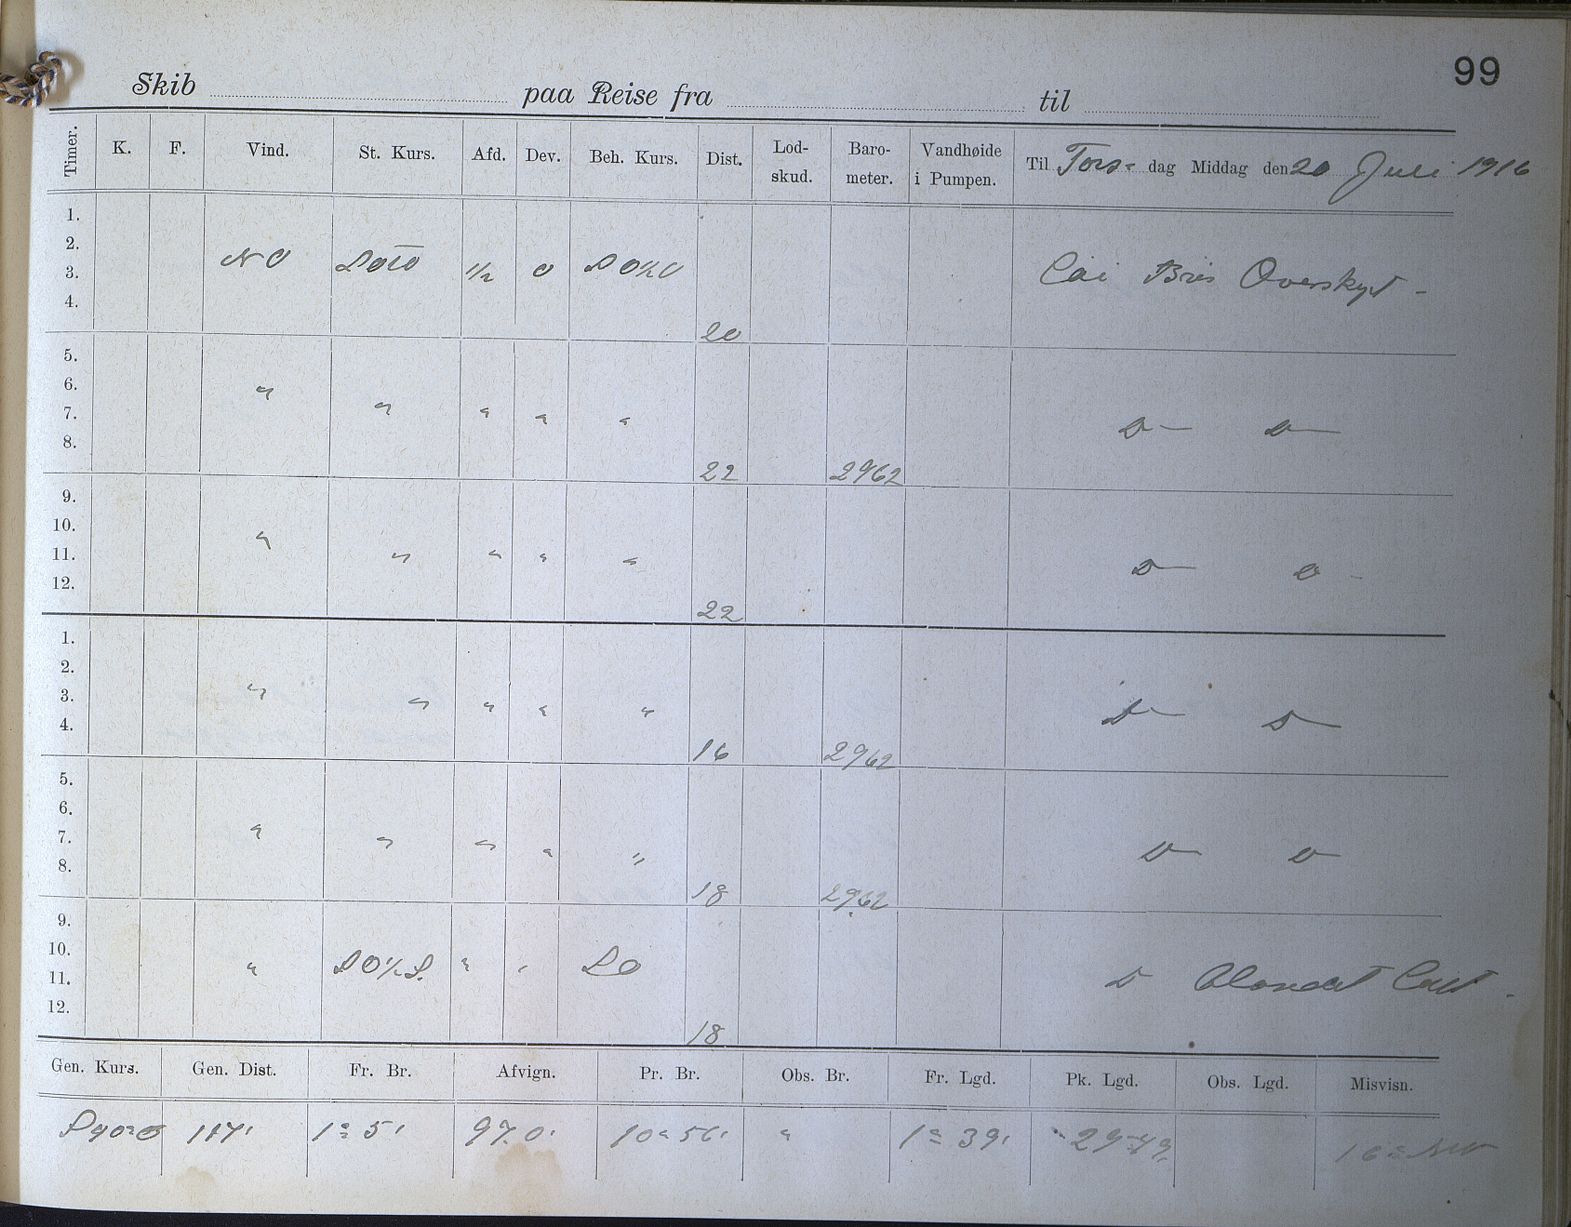 99
Skib paa Reise fra til
Timer. K. F. Vind. St. Kurs. Afd. Dev. Beh. Kurs. Dist. Lod-skud. Baro-meter. Vandhøide i Pumpen. Til Tors- dag Middag den 20 Juli 1916
1.
2.
3. NO 1/2 0 SO½O Lai Bris Overskyet -
4. 20
5.
6. " " " " "
7. D— D—
8. 22 2962
9.
10. " " " " "
11. D— D-
12. 22
1.
2.
3. " " " " "
4. D— D—
16 2962
5.
6.
7. " " " " " D— D—
8. 18 2962
9.
10. " SO½S. " " SO
11. D Luft
12. 18
Gen. Kurs. Gen. Dist. Fr. Br. Afvign. Pr. Br. Obs. Br. Fr. Lgd. Pk. Lgd. Obs. Lgd. Misvisn.
117' 1° 5' 97.0' 10° 56' " 1° 39' 29-49,